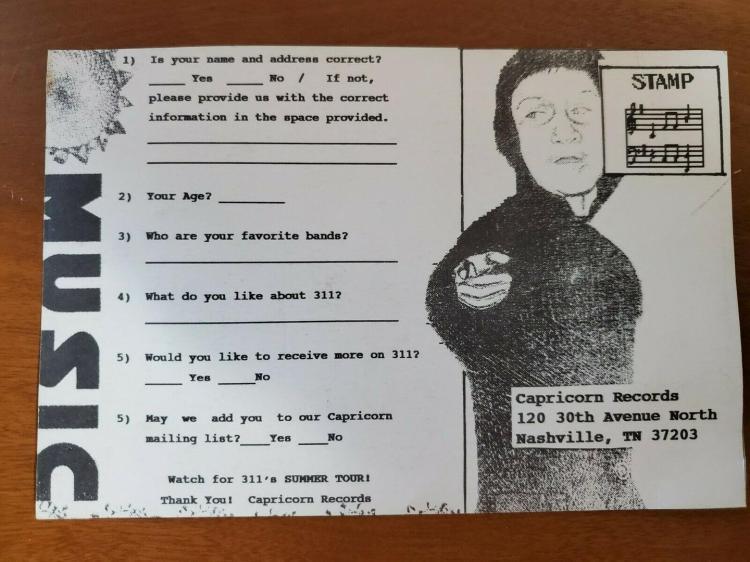 MUSIC
1) Is your name and address correct?
____ Yes ____ No / If not,
please provide us with the correct
information in the space provided.
2) Your Age? ________
3) Who are your favorite bands?
4) What do you like about 311?
5) Would you like to receive more on 311?
____ Yes ____No
5) May we add you to our Capricorn
mailing list?___Yes ___No
Watch for 311's SUMMER TOUR!
Thank You! Capricorn Records
STAMP
Capricorn Records
120 30th Avenue North
Nashville, TN 37203